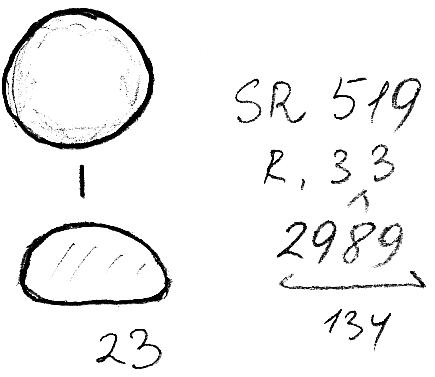 SR 519
R, 33
2989
134
23